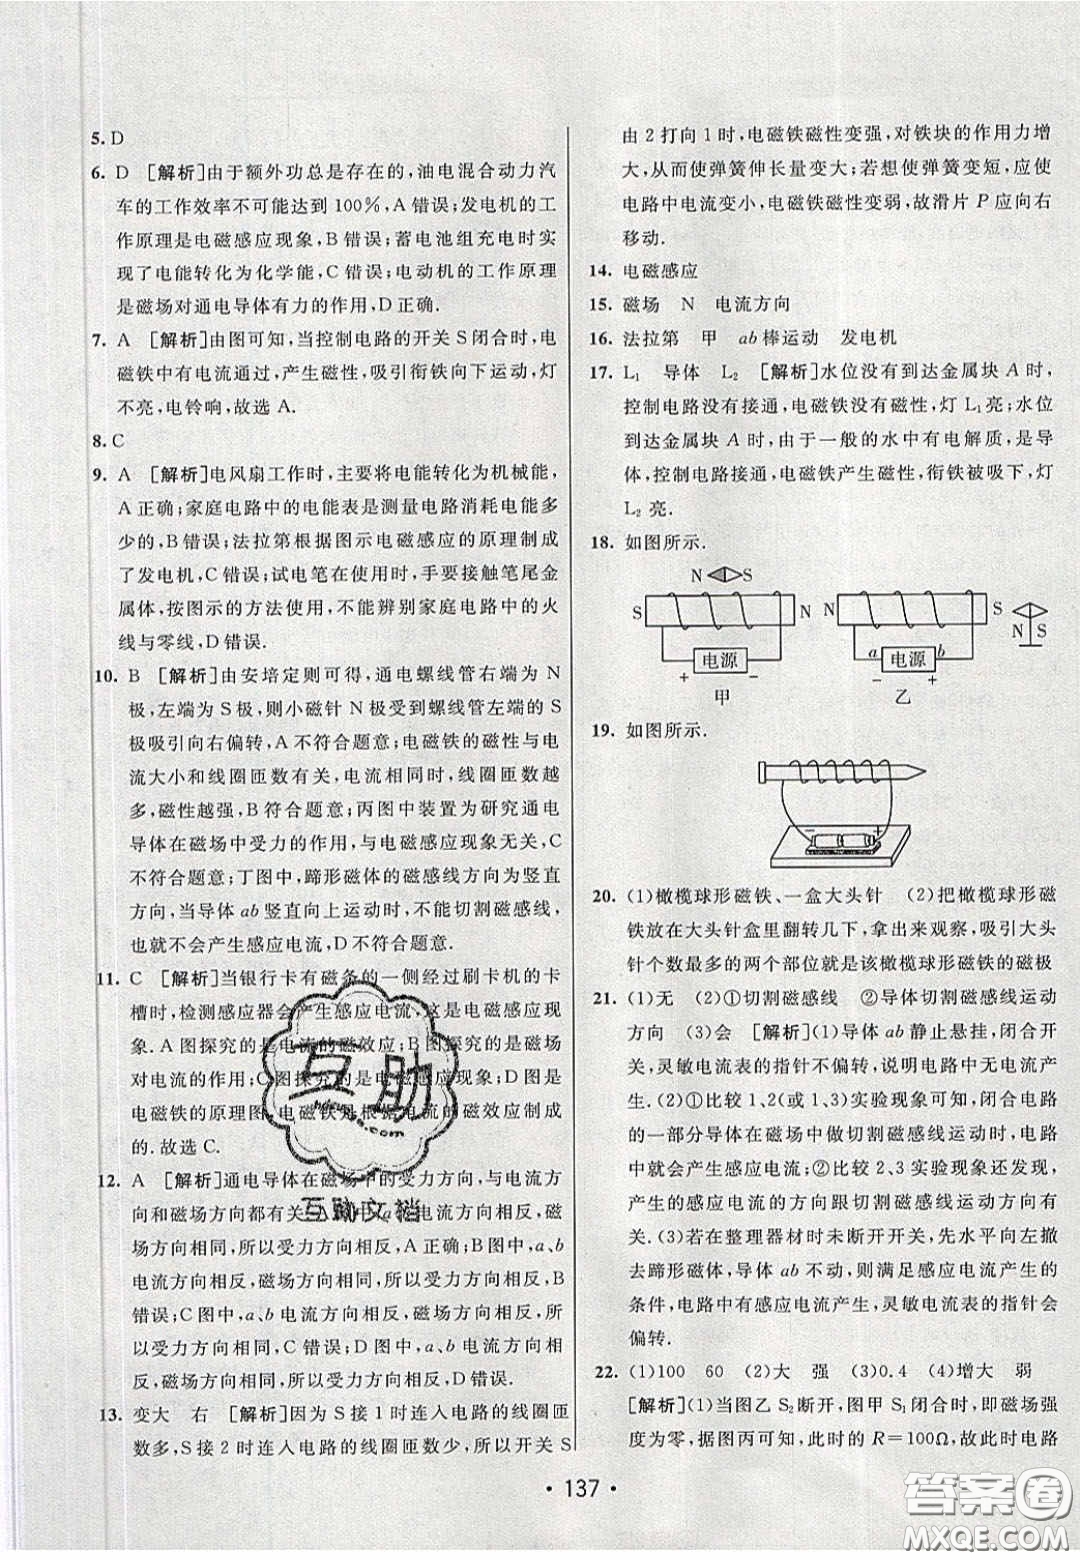 5. D
6. D [解析]由于额外功总是存在的,油电混合动力汽
车的工作效率不可能达到 100%,A 错误;发电机的工
作原理是电磁感应现象,B 错误;蓄电池组充电时实
现了电能转化为化学能,C 错误;电动机的工作原理
是磁场对通电导体有力的作用,D 正确.
7. A [解析]由图可知,当控制电路的开关 S 闭合时,电
磁铁中有电流通过,产生磁性,吸引衔铁向下运动,灯
不亮,电铃响,故选 A.
8. C
9. A [解析]电风扇工作时,主要将电能转化为机械能,
A 正确;家庭电路中的电能表是测量电路消耗电能多
少的,B 错误;法拉第根据图示电磁感应的原理制成
了发电机,C 错误;试电笔在使用时,手要接触笔尾金
属体,按图示的方法使用,不能辨别家庭电路中的火
线与零线,D 错误.
10. B [解析]由安培定则可得,通电螺线管右端为 N
极,左端为 S 极,则小磁针 N 极受到螺线管左端的 S
极吸引向右偏转,A 不符合题意;电磁铁的磁性与电
流大小和线圈匝数有关,电流相同时,线圈匝数越
多,磁性越强,B 符合题意;丙图中装置为研究通电
导体在磁场中受力的作用,与电磁感应现象无关,C
不符合题意;丁图中,蹄形磁体的磁感线方向为竖直
方向,当导体 ab 竖直向上运动时,不能切割磁感线,
也就不会产生感应电流,D 不符合题意.
11. C [解析]当银行卡有磁条的一侧经过刷卡机的卡
槽时,检测感应器会产生感应电流,这是电磁感应现
象. A 图探究的是电流的磁效应;B 图探究的是磁场
对电流的作用;C 图探究的是电磁感应现象;D 图是
电磁铁的原理图,电磁铁是根据电流的磁效应制成
的. 故选 C.
12. A [解析]通电导体在磁场中的受力方向,与电流方
向和磁场方向都有关,A 图中,a、b 电流方向相反,磁
场方向相同,所以受力方向相反,A 正确;B 图中,a、b
电流方向相反,磁场方向相同,所以受力方向相反,B
错误;C 图中,a、b 电流方向相反,磁场方向相反,所
以受力方向相同,C 错误;D 图中,a、b 电流方向相
同,磁场方向相反,所以受力方向相反,D 错误.
13. 变大 右 [解析]因为 S 接 1 时连入电路的线圈匝
数多,S 接 2 时连入电路的线圈匝数少,所以开关 S
由 2 打向 1 时,电磁铁磁性变强,对铁块的作用力增
大,从而使弹簧伸长量变大;若想使弹簧变短,应使
电路中电流变小,电磁铁磁性变弱,故滑片 P 应向右
移动.
14. 电磁感应
15. 磁场 N 电流方向
16. 法拉第 甲 ab 棒运动 发电机
17. L₁ 导体 L₂ [解析]水位没有到达金属块 A 时,
控制电路没有接通,电磁铁没有磁性,灯 L₁ 亮;水位
到达金属块 A 时,由于一般的水中有电解质,是导
体,控制电路接通,电磁铁产生磁性,衔铁被吸下,灯
L₂ 亮.
18. 如图所示.
N S
S N
电源
+ −
甲
N S
N S
a b
电源
− +
乙
19. 如图所示.
− +
20. (1)橄榄球形磁铁、一盒大头针 (2)把橄榄球形磁
铁放在大头针盒里翻转几下,拿出来观察,吸引大头
针个数最多的两个部位就是该橄榄球形磁铁的磁极
21. (1)无 (2)①切割磁感线 ②导体切割磁感线运动
方向 (3)会 [解析](1)导体 ab 静止悬挂,闭合开
关,灵敏电流表的指针不偏转,说明电路中无电流产
生. (2)①比较 1、2(或 1、3)实验现象可知,闭合电路
的一部分导体在磁场中做切割磁感线运动时,电路
中就会产生感应电流;②比较 2、3 实验现象还发现,
产生的感应电流的方向跟切割磁感线运动方向有
关. (3)若在整理器材时未断开开关,先水平向左撤
去蹄形磁体,导体 ab 不动,则满足感应电流产生的
条件,电路中有感应电流产生,灵敏电流表的指针会
偏转.
22. (1)100 60 (2)大 强 (3)0.4 (4)增大 弱
[解析](1)当图乙 S₂断开,图甲 S₁闭合时,即磁场强
度为零,据图丙可知,此时的 R=100Ω,故此时电路
• 137 •
互助
互助文档
答案圈
MXQE.COM